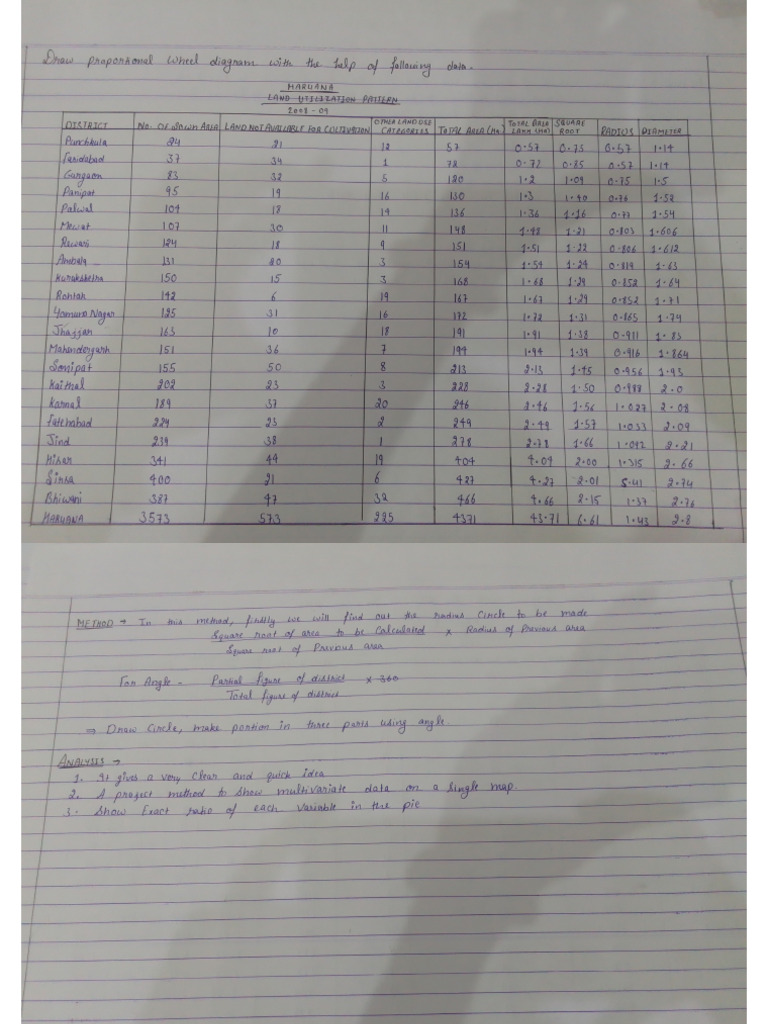 Draw proportional wheel diagram with the help of following data.
HARYANA
LAND UTILIZATION PATTERN
2008-09
DISTRICT No. OF SOWN AREA LAND NOT AVAILABLE FOR CULTIVATION OTHER LAND USE CATEGORIES TOTAL AREA (Ha) TOTAL AREA LAKH (HA) SQUARE ROOT RADIUS DIAMETER
Panchkula 24 21 12 57 0.57 0.75 0.57 1.14
Faridabad 37 34 1 72 0.72 0.85 0.57 1.14
Gurgaon 83 32 5 120 1.2 1.09 0.75 1.5
Panipat 95 19 16 130 1.3 1.40 0.76 1.52
Palwal 104 18 14 136 1.36 1.16 0.77 1.54
Mewat 107 30 11 148 1.48 1.21 0.803 1.606
Rewari 124 18 9 151 1.51 1.22 0.806 1.612
Ambala 131 20 3 154 1.54 1.24 0.819 1.63
Kurukshetra 150 15 3 168 1.68 1.29 0.852 1.64
Rohtak 142 6 19 167 1.67 1.29 0.852 1.71
Yamuna Nagar 125 31 16 172 1.72 1.31 0.865 1.74
Jhajjar 163 10 18 191 1.91 1.38 0.911 1.83
Mahendergarh 151 36 7 194 1.94 1.39 0.916 1.864
Sonipat 155 50 8 213 2.13 1.45 0.956 1.93
Kaithal 202 23 3 228 2.28 1.50 0.988 2.0
Karnal 189 37 20 246 2.46 1.56 1.027 2.08
Fatehabad 224 23 2 249 2.49 1.57 1.033 2.09
Jind 239 38 1 278 2.78 1.66 1.092 2.21
Hisar 341 44 19 404 4.04 2.00 1.315 2.66
Sirsa 400 21 6 427 4.27 2.01 5.41 2.74
Bhiwani 387 47 32 466 4.66 2.15 1.37 2.76
HARYANA 3573 573 225 4371 43.71 6.61 1.43 2.8
METHOD → In this method, firstly we will find out the radius Circle to be made
Square root of area to be Calculated × Radius of Previous area
Square root of Previous area
For Angle - Partial figure of district × 360
Total figure of district
⇒ Draw Circle, make portion in three parts using angle.
ANALYSIS →
1. It gives a very Clear and quick idea
2. A project method to show multivariate data on a single map.
3. Show Exact ratio of each variable in the pie